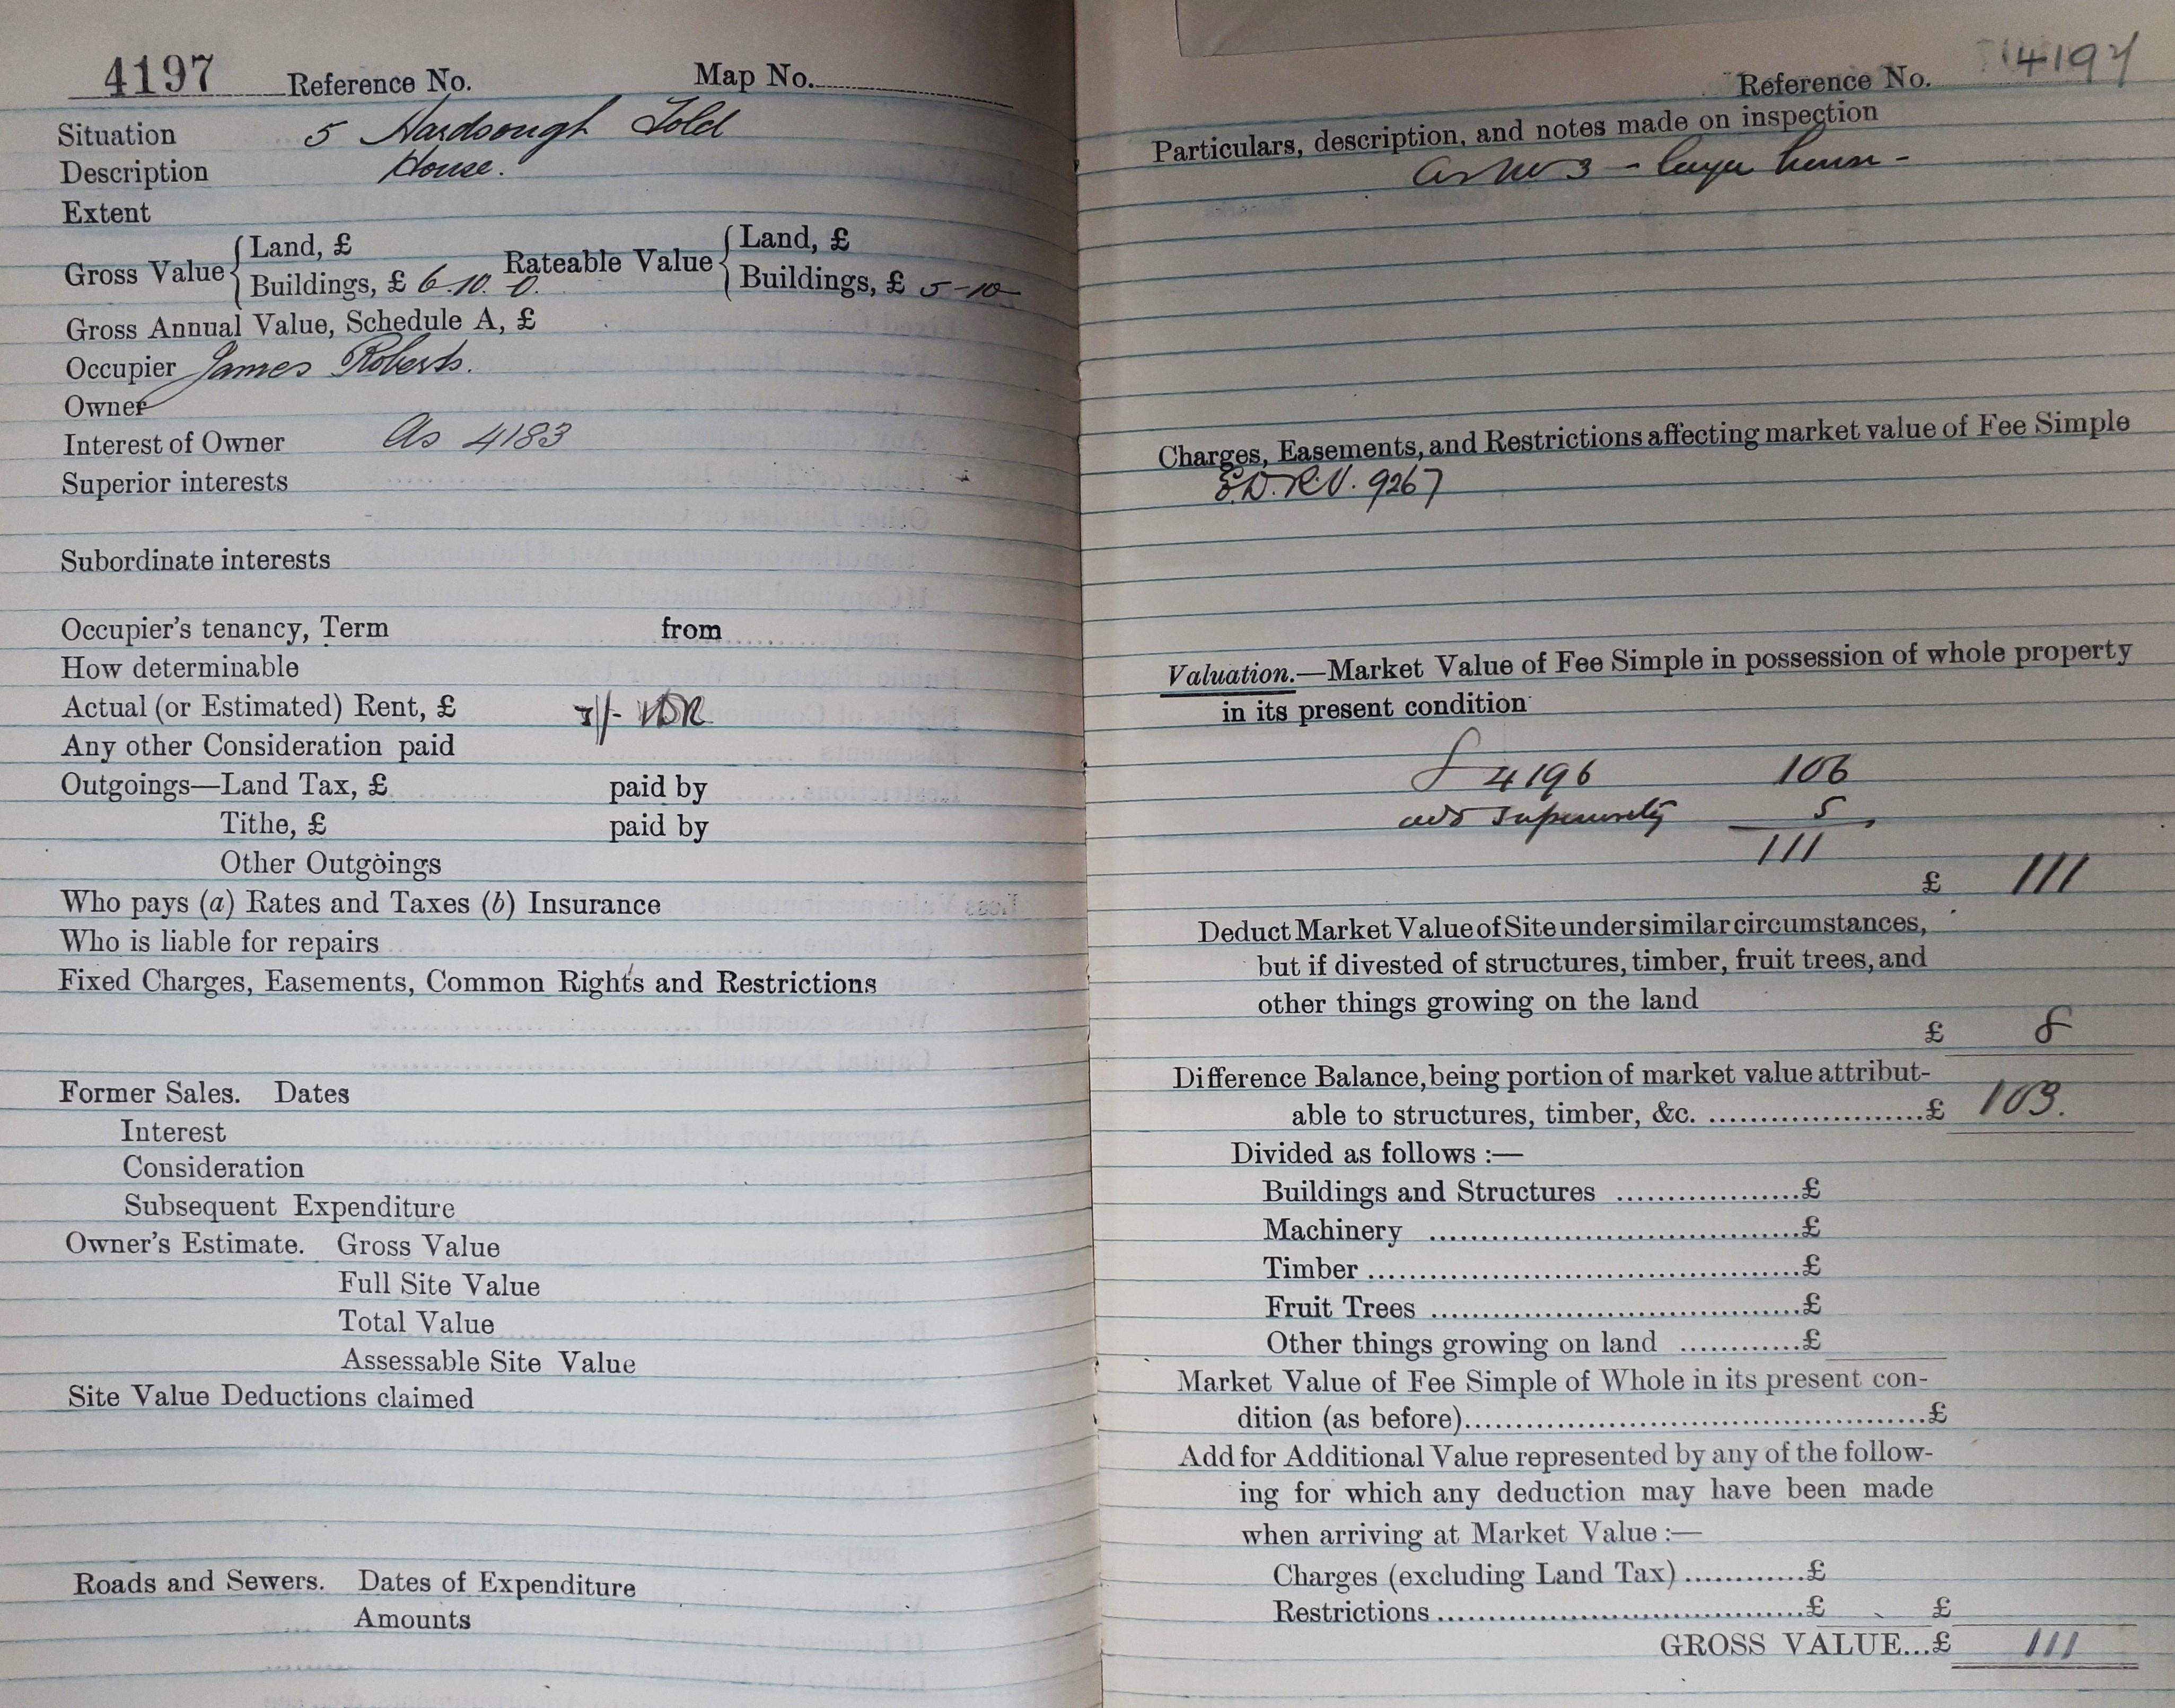 4197 Reference No. Map No.
Situation 5 Hardsough Fold
Description House.
Extent
Gross Value { Land, £ Rateable Value { Land, £
Buildings, £ 6.10.0. Buildings, £ 5-10-
Gross Annual Value, Schedule A, £
Occupier James Roberts.
Owner
Interest of Owner As 4183
Superior interests
Subordinate interests
Occupier's tenancy, Term from
How determinable
Actual (or Estimated) Rent, £
Any other Consideration paid
Outgoings—Land Tax, £ paid by
Tithe, £ paid by
Other Outgoings
Who pays (a) Rates and Taxes (b) Insurance
Who is liable for repairs
Fixed Charges, Easements, Common Rights and Restrictions
Former Sales. Dates
Interest
Consideration
Subsequent Expenditure
Owner's Estimate. Gross Value
Full Site Value
Total Value
Assessable Site Value
Site Value Deductions claimed
Roads and Sewers. Dates of Expenditure
Amounts
Reference No. 4197
Particulars, description, and notes made on inspection
as No 3 - larger house -
Charges, Easements, and Restrictions affecting market value of Fee Simple
9267
Valuation.—Market Value of Fee Simple in possession of whole property
in its present condition
4196 106
add superiority 5
111
£ 111
Deduct Market Value of Site under similar circumstances,
but if divested of structures, timber, fruit trees, and
other things growing on the land
£ 8
Difference Balance, being portion of market value attribut-
able to structures, timber, &c. ......................£ 103.
Divided as follows :—
Buildings and Structures ...................£
Machinery ......................................£
Timber ............................................£
Fruit Trees ......................................£
Other things growing on land ............£
Market Value of Fee Simple of Whole in its present con-
dition (as before)................................................£
Add for Additional Value represented by any of the follow-
ing for which any deduction may have been made
when arriving at Market Value :—
Charges (excluding Land Tax) ............£
Restrictions ......................................£ £
GROSS VALUE...£ 111